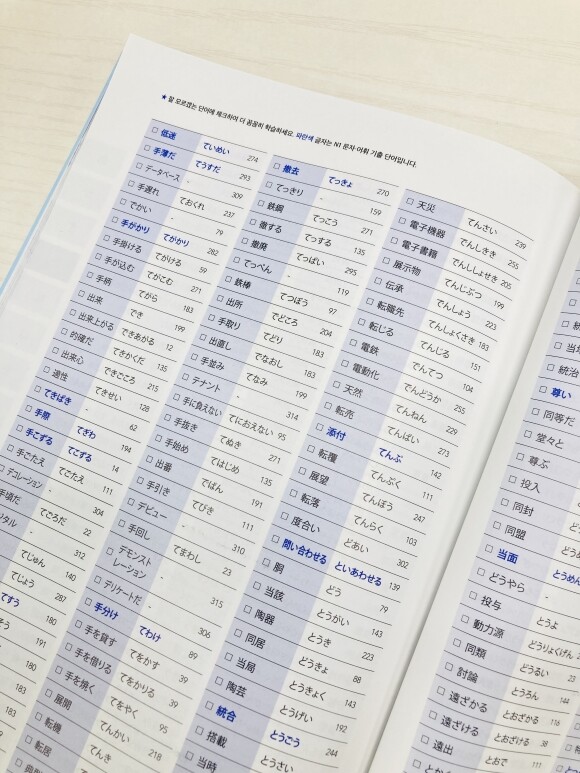 ★ 잘 모르겠는 단어에 체크하여 더 꼼꼼히 학습하세요. 파란색 글자는 N1 문자·어휘 기출 단어입니다.
□ 低迷 ていめい 274
□ 手薄だ てうすだ 293
□ データベース - 309
□ 手遅れ ておくれ 237
□ でかい - 79
□ 手がかり てがかり 282
□ 手掛ける てがける 59
□ 手が込む てがこむ 271
□ 手柄 てがら 183
□ 出来 でき 199
□ 出来上がる できあがる 12
□ 的確だ てきかくだ 135
□ 出来心 できごころ 215
□ 適性 てきせい 128
□ てきぱき - 62
□ 手際 てぎわ 194
□ 手こずる てこずる 14
□ 手ごたえ てごたえ 111
デコレーション - 304
手頃だ てごろだ 22
タル - 312
てじゅん 140
てじょう 287
てすう 180
191
180
180
183
183
□ 撤去 てっきょ 270
□ てっきり - 159
□ 鉄鋼 てっこう 271
□ 徹する てっする 135
□ 撤廃 てっぱい 295
□ てっぺん - 119
□ 鉄棒 てつぼう 97
□ 出所 でどころ 204
□ 手取り てどり 183
□ 出直し でなおし 183
□ 手並み てなみ 199
□ テナント - 314
□ 手に負えない てにおえない 95
□ 手抜き てぬき 271
□ 手始め てはじめ 135
□ 出番 でばん 191
□ 手引き てびき 111
□ デビュー - 310
□ 手回し てまわし 23
□ デモンスト
レーション - 315
□ デリケートだ - 306
□ 手分け てわけ 89
□ 手を貸す てをかす 39
□ 手を借りる てをかりる 39
□ 手を焼く てをやく 95
□ 展開 てんかい 218
□ 転機 てんき
□ 転居
□ 天災 てんさい 239
□ 電子機器 でんしきき 255
□ 電子書籍 でんししょせき 205
□ 展示物 てんじぶつ 199
□ 伝承 でんしょう 223
□ 転職先 てんしょくさき 183
□ 転じる てんじる 151
□ 電鉄 でんてつ 104
□ 電動化 でんどうか 255
□ 天然 てんねん 229
□ 転売 てんばい 273
□ 添付 てんぷ 142
□ 転覆 てんぷく 111
□ 展望 てんぼう 247
□ 転落 てんらく 103
□ 度合い どあい 302
□ 問い合わせる といあわせる 139
□ 胴 どう 79
□ 当該 とうがい 143
□ 陶器 とうき 223
□ 同居 どうきょ 88
□ 当局 とうきょく 143
□ 陶芸 とうげい 192
□ 統合 とうごう 244
□ 搭載 とうさい
□ 当時
□ 統治
□ 尊い
□ 同等だ
□ 堂々と
□ 尊ぶ
□ 投入
□ 同封
□ 同盟
□ 当面 とうめん
□ どうやら -
□ 投与 とうよ
□ 動力源 どうりょくげん
□ 同類 どうるい 23
□ 討論 とうろん 144
□ 遠ざかる とおざかる 116
□ 遠ざける とおざける 38
□ 遠出 とおで 111